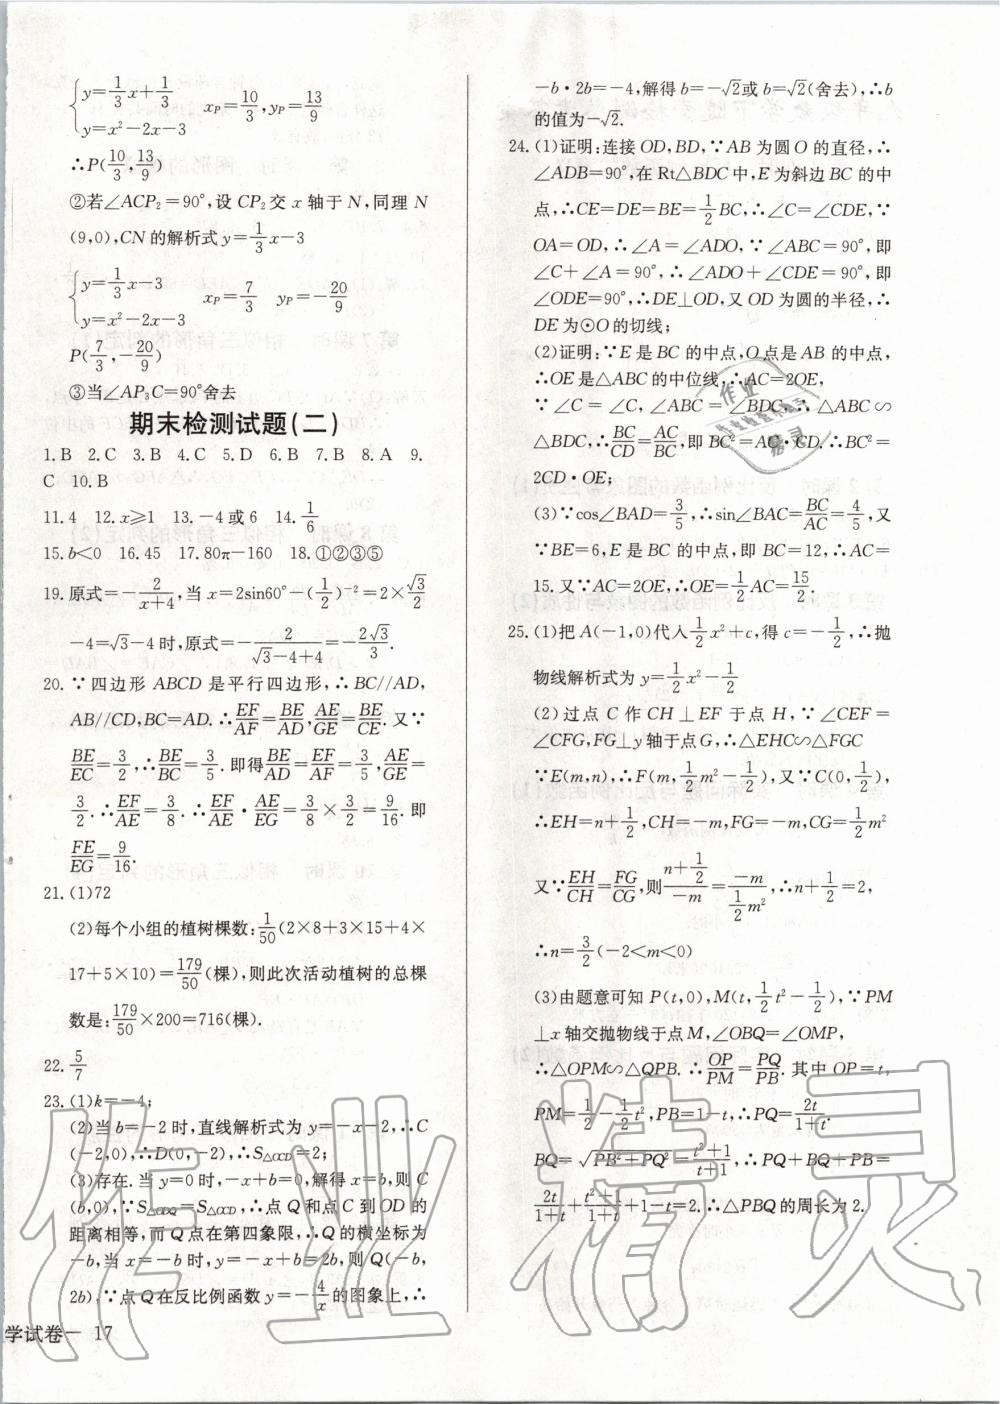 {y=1/3x+1/3
y=x²-2x-3  x_P=10/3,y_P=13/9
∴P(10/3,13/9)
②若∠ACP₂=90°,设 CP₂交 x 轴于 N,同理 N
(9,0),CN 的解析式 y=1/3x-3
{y=1/3x-3
y=x²-2x-3  x_P=7/3  y_P=-20/9
P(7/3,-20/9)
③当∠AP₃C=90°舍去
期末检测试题(二)
1.B 2.C 3.B 4.C 5.D 6.B 7.B 8.A 9.
C 10.B
11.4 12.x⩾1 13.-4或6 14.1/6
15.b<0 16.45 17.80π-160 18.①②③⑤
19.原式=-2/(x+4),当 x=2sin60°-(1/2)⁻²=2×√3/2
-4=√3-4时,原式=-2/(√3-4+4)=-2√3/3.
20.∵四边形 ABCD 是平行四边形,∴BC//AD,
AB//CD,BC=AD.∴EF/AF=BE/AD,AE/GE=BE/CE.又∵
BE/EC=3/2,∴BE/BC=3/5.即得BE/AD=EF/AF=3/5,AE/GE=
3/2.∴EF/AE=3/8.∴EF/AE·AE/EG=3/8×3/2=9/16.即
FE/EG=9/16.
21.(1)72
(2)每个小组的植树棵数:1/50(2×8+3×15+4×
17+5×10)=179/50(棵),则此次活动植树的总棵
数是:179/50×200=716(棵).
22.5/7
23.(1)k=-4;
(2)当 b=-2时,直线解析式为 y=-x-2,∴C
(-2,0),∴D(0,-2),∴S△OCD=2;
(3)存在.当 y=0时,-x+b=0,解得 x=b,则 C
(b,0),∵S△ODQ=S△OCD,∴点 Q 和点 C 到 OD 的
距离相等,而 Q 点在第四象限,∴Q 的横坐标为
-b,当 x=-b 时,y=-x+b=2b,则 Q(-b,
2b),∵点 Q 在反比例函数 y=-4/x 的图象上,∴
学试卷一 17
-b·2b=-4,解得 b=-√2或 b=√2(舍去),∴b
的值为-√2.
24.(1)证明:连接 OD,BD,∵AB 为圆 O 的直径,∴
∠ADB=90°,在 Rt△BDC 中,E 为斜边 BC 的中
点,∴CE=DE=BE=1/2BC,∴∠C=∠CDE,∵
OA=OD,∴∠A=∠ADO,∵∠ABC=90°,即
∠C+∠A=90°,∴∠ADO+∠CDE=90°,即
∠ODE=90°,∴DE⊥OD,又 OD 为圆的半径,∴
DE 为⊙O 的切线;
(2)证明:∵E 是 BC 的中点,O 点是 AB 的中点,
∴OE 是△ABC 的中位线,∴AC=2OE,
∵∠C=∠C,∠ABC=∠BDC,∴△ABC∽
△BDC,∴BC/CD=AC/BC,即 BC²=AC·CD.∴BC²=
2CD·OE;
(3)∵cos∠BAD=3/5,∴sin∠BAC=BC/AC=4/5,又
∵BE=6,E 是 BC 的中点,即 BC=12,∴AC=
15.又∵AC=2OE,∴OE=1/2AC=15/2.
25.(1)把 A(-1,0)代入1/2x²+c,得 c=-1/2,∴抛
物线解析式为 y=1/2x²-1/2
(2)过点 C 作 CH⊥EF 于点 H,∵∠CEF=
∠CFG,FG⊥y 轴于点 G,∴△EHC∽△FGC
∵E(m,n),∴F(m,1/2m²-1/2),又∵C(0,1/2),
∴EH=n+1/2,CH=-m,FG=-m,CG=1/2m²
又∵EH/CH=FG/CG,则(n+1/2)/(-m)=(-m)/(1/2m²),∴n+1/2=2,
∴n=3/2(-2<m<0)
(3)由题意可知 P(t,0),M(t,1/2t²-1/2),∵PM
⊥x 轴交抛物线于点 M,∠OBQ=∠OMP,
∴△OPM∽△QPB.∴OP/PM=PQ/PB.其中 OP=t,
PM=1/2-1/2t²,PB=1-t,∴PQ=2t/(1+t).
BQ=√(PB²+PQ²)=(t²+1)/(t+1),∴PQ+BQ+PB=
2t/(1+t)+(t²+1)/(1+t)+1-t=2.∴△PBQ 的周长为 2.
作业精灵